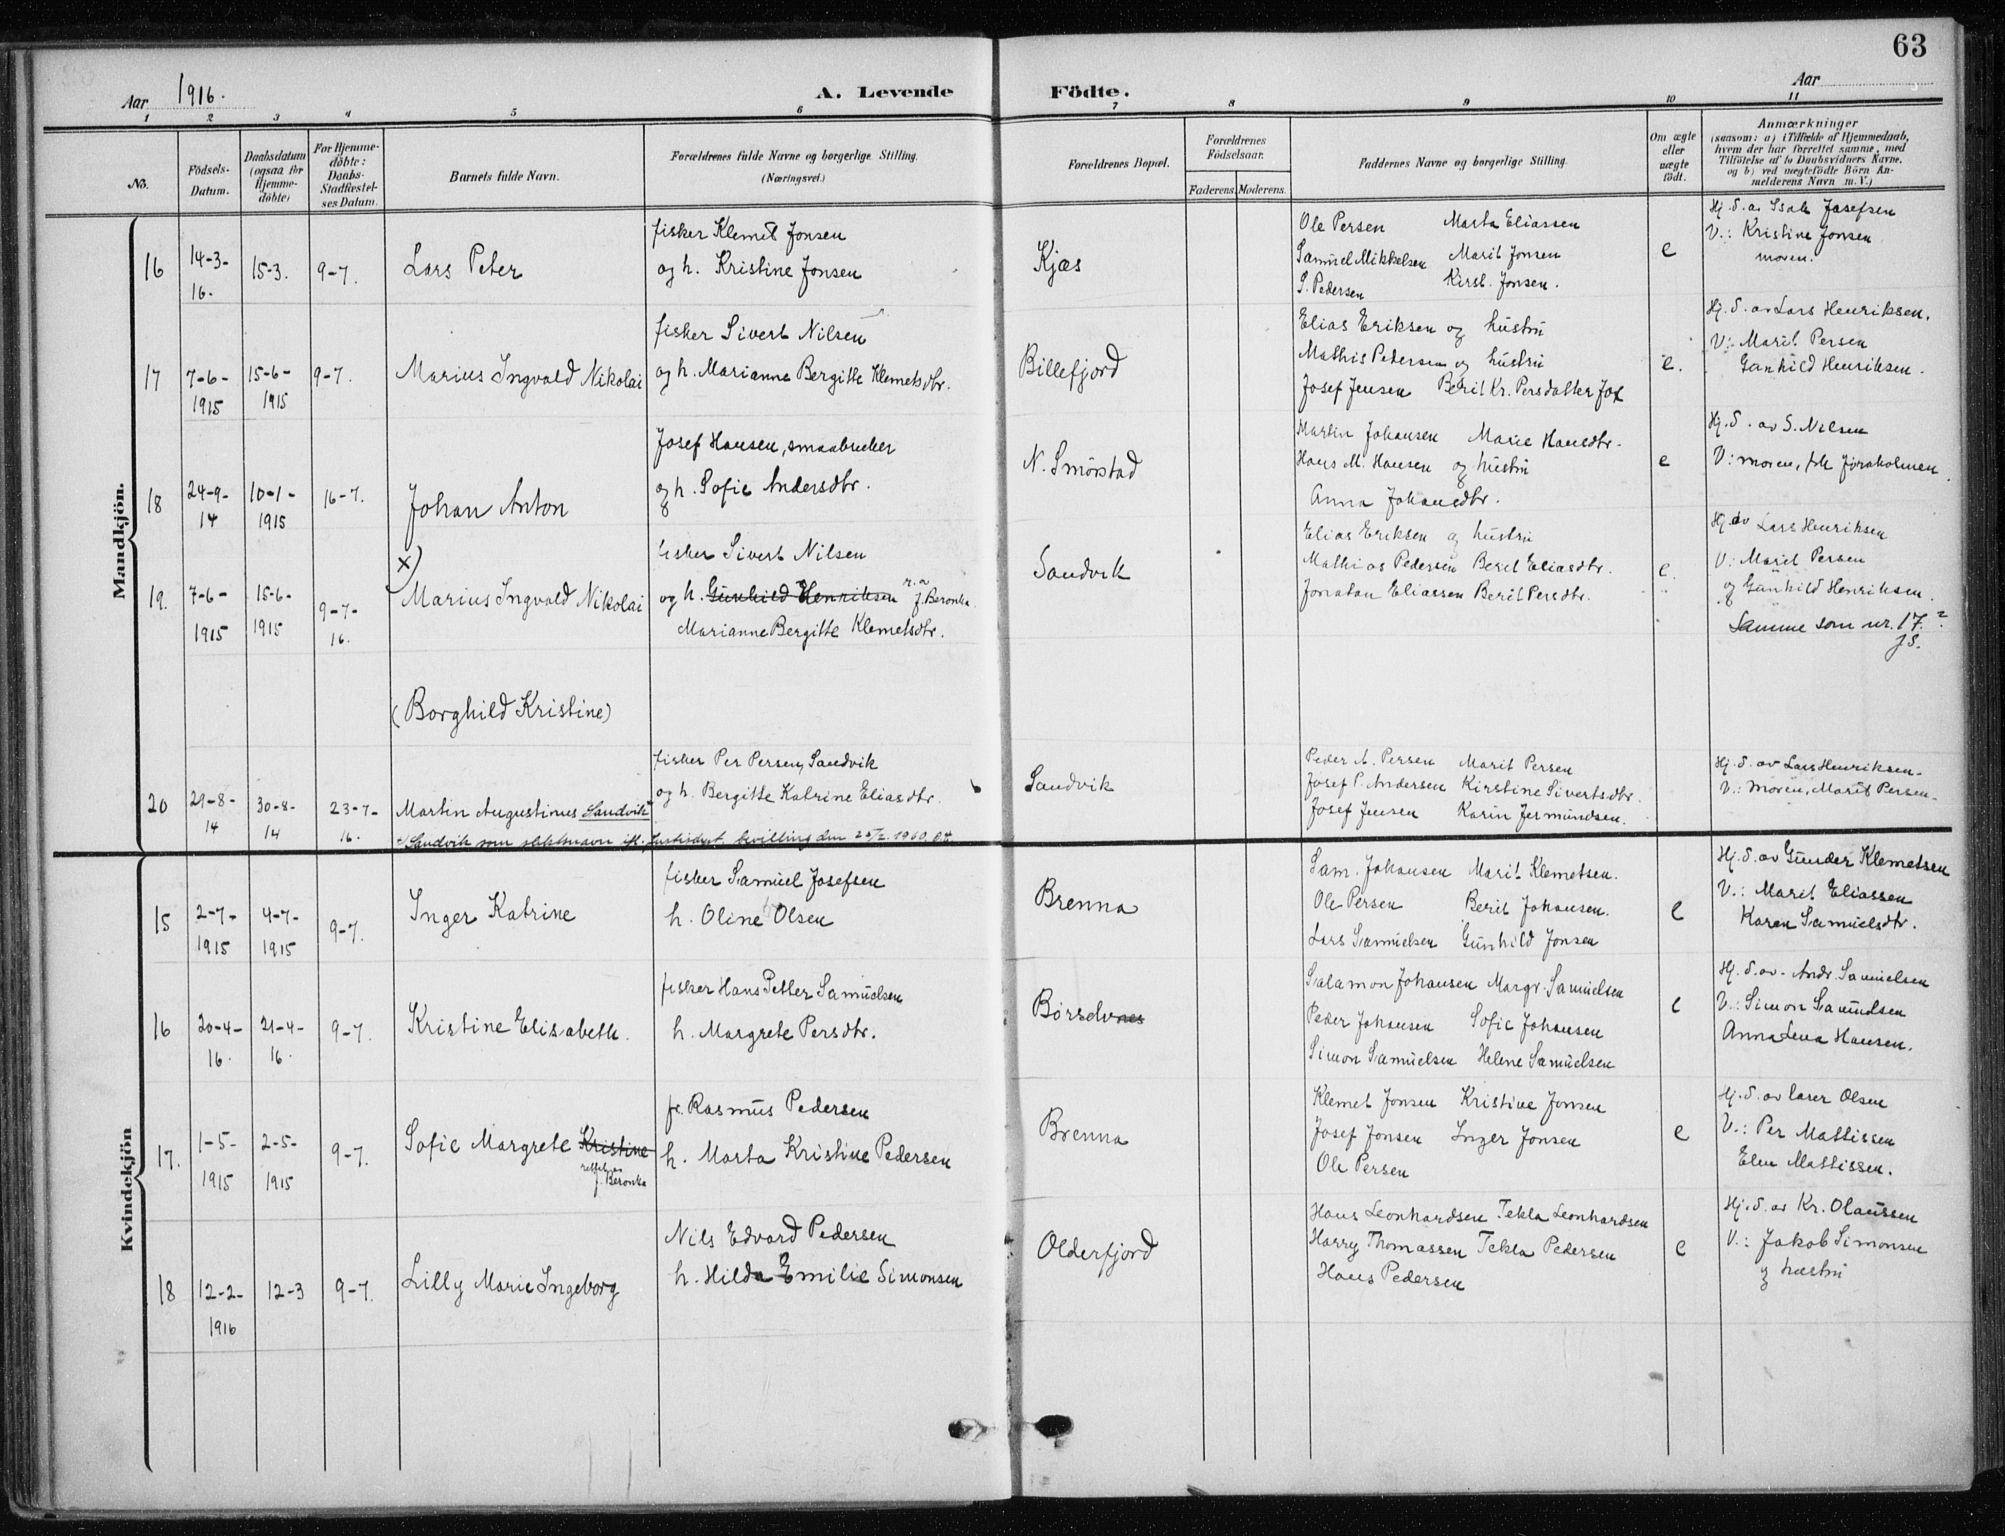 63
Aar 1916.
A. Levende Födte.
Aar
1 2 3 4 5 6 7 8 9 10 11
No.
Födsels-
Datum.
Daabsdatum
(ogsaa for
Hjemme-
döbte)
For Hjemme-
döbte:
Daabs-
Stadfæstel-
ses Datum.
Barnets fulde Navn.
Forældrenes fulde Navne og borgerlige Stilling.
(Næringsvei.)
Forældrenes Bopæl.
Forældrenes
Födselsaar.
Faderens. Moderens.
Faddernes Navne og borgerlige Stilling.
Om ægte
eller
uægte
födt.
Anmærkninger
(saasom: a) i Tilfælde af Hjemmedaab,
hvem der har forrettet samme, med
Tilföielse af to Daabsvidners Navne,
og b) ved uægtefödte Börn An-
melderens Navn m. V.)
Mandkjön.
16
14-3-
16.
15-3.
9-7.
Lars Peter
fisker Klemet Jonsen
og h. Kristine Jonsen
Kjæs
Ole Persen Marta Eliassen
Samuel Mikkelsen Marit Jonsen
S. Pedersen Kirst. Jonsen.
e
Hj. d. av Isak Josefsen
V.: Kristine Jonsen
moren.
17
7-6-
1915
15-6-
1915
9-7.
Marius Ingvald Nikolai
fisker Sivert Nilsen
og h. Marianne Bergitte Klemetsdtr.
Billefjord
Elias Eriksen og hustru
Mathis Pedersen og hustru
Josef Jensen Berit Kr. Persdatter
e.
Hj. d. av Lars Henriksen.
V: Marit Persen
Gunhild Henriksen.
18
24-9-
14
10-1-
1915
16-7.
Johan Anton
Josef Hansen, smaabruker
og h. Sofie Andersdtr.
N. Smörstad
Martin Johansen Marie Hansdtr.
Hans M. Hansen og hustru
Anna Johansdtr.
e
Hj. d. av S. Nilsen
V: moren,
19.
7-6-
1915
15-6-
1915
9-7-
16.
x)
Marius Ingvald Nikolai
fisker Sivert Nilsen
og h. Gunhild Henriksen r.a f. Beronka.
Marianne Bergitte Klemetsdtr.
Sandvik
Elias Eriksen og hustru
Mathias Pedersen Berit Eliasdtr.
Jonatan Eliassen Berit Persdtr.
e.
Hj av Lars Henriksen
V: Marit Persen
og Gunhild Henriksen.
Samme som nr. 17.?
JS.
(Borghild Kristine)
20
29-8-
14
30-8-
14
23-7-
16.
Martin Augustinus Sandvik
fisker Per Persen, Sandvik
og h. Bergitte Katrine Eliasdtr.
Sandvik som slektsnavn ifl. Justisdept. bevilling den
Sandvik
Peder A. Persen Marit Persen
Josef P. Andersen Kirstine Sivertsdtr.
Josef Jensen Karin Jermundsen.
Hj. d. av Lars Henriksen-
V.: moren, Marit Persen-
Kvindekjön
15
2-7-
1915
4-7-
1915
9-7.
Inger Katrine
fisker Samuel Josefsen
h. Oline Olsen
Brenna
Sam. Johansen Marit Klemetsen.
Ole Persen Berit Johansen.
Lars Samuelsen Gunhild Jonsen
e
Hj. d. av Gunder Klemetsen
V.: Marit Eliassen
Karen Samuelsdtr.
16
20-4-
16.
21-4-
16.
9-7.
Kristine Elisabeth.
fisker Hans Petter Samuelsen
h. Margrete Persdtr.
Börselvnes
Salamon Johansen Margr. Samuelsen
Peder Johansen Sofie Johansen
Simon Samuelsen Helene Samuelsen
e
Hj. d. av Andr. Samuelsen
V.: Simon Samuelsen
Anna Lena Hansen.
17.
1-5-
1915
2-5-
1915
9-7.
Sofie Margrete Kristine
rettet av
f. Beronka
fr. Rasmus Pedersen
h. Marta Kristine Pedersen
Brenna
Klemet Jonsen Kristine Jonsen
Josef Jonsen Inger Jonsen
Ole Persen
e
Hj. d. av lærer Olsen
V.: Per Mattissen
Elen Mattissen.
18
12-2-
1916
12-3
9-7.
Lilly Marie Ingeborg
Nils Edvard Pedersen
h. Hilda Emilie Simonsen
Olderfjord
Hans Leonhardsen Tekla Leonhardsen
Harry Thomassen Tekla Pedersen
Hans Pedersen
e
Hj. d. av Kr. Olaussen
V.: Jakob Simonsen
og hustru